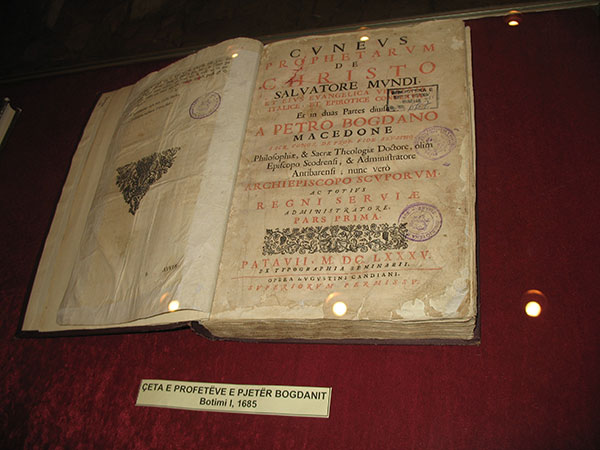 CVNEVS
PROPHETARVM
DE
CHRISTO
SALVATORE MVNDI,
ET EIVS EVANGELICA
ITALICE, ET EPIROTICE
Et in duas Partes
A PETRO BOGDANO
MACEDONE
Philosophiæ, & Sacræ Theologiæ Doctore, olim
Episcopo Scodrensi, & Administratore
Antibarensi; nunc verò
ARCHIEPISCOPO SCVPORVM
AC TOTIVS
REGNI SERVIÆ
ADMINISTRATORE.
PARS PRIMA.
PATAVII. M. DC. LXXXV.
EX TYPOGRAPHIA SEMINARII.
OPERA AVGVSTINI CANDIANI.
SVPERIORVM PERMISSV.
ÇETA E PROFETËVE E PJETËR BOGDANIT
Botimi I, 1685